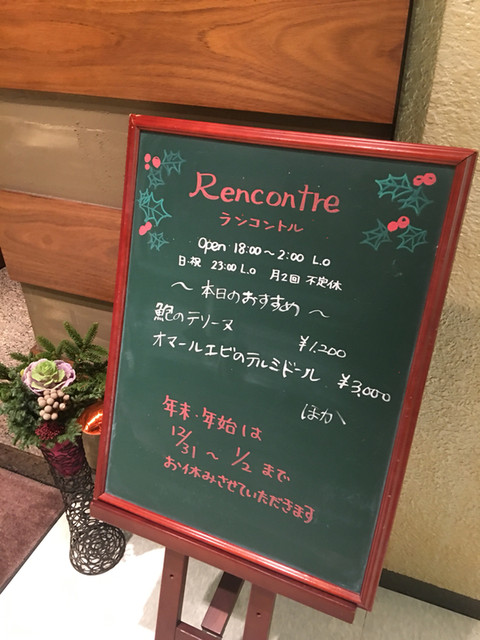 Rencontre
ランコントル
Open 18:00〜2:00 L.O
日・祝 23:00 L.O 月2回 不定休
〜本日のおすすめ〜
鮑のテリーヌ ¥1,200
オマールエビのテルミドール ¥3,000
ほか
年末・年始は
12/31〜1/2まで
お休みさせていただきます